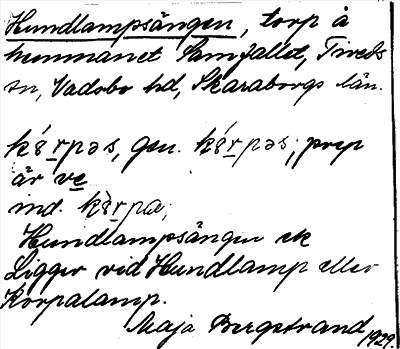 Hundlampsängen, torp å
hemmanet Samfallet, Tiveds
sn, Vadsbo hd, Skaraborgs län.
kɛ́rpəs, gen. kɛ́rpəs; prep
är ve
ind. kɛ̀rpa;
Hundlampsängen
Ligger vid Hundlamp eller
Korpalamp.
Maja Bergstrand 1929.